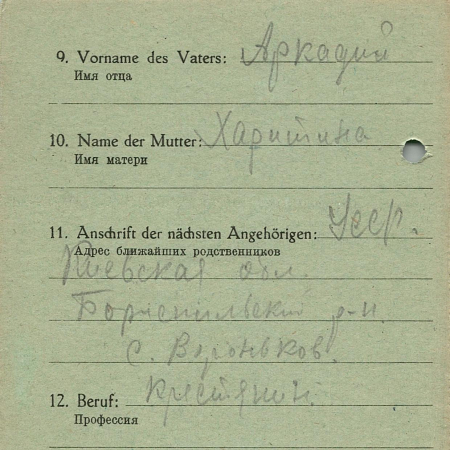 9. Vorname des Vaters: Аркадий
Имя отца
10. Name der Mutter: Харитина
Имя матери
11. Anschrift der nächsten Angehörigen: Усср.
Адрес ближайших родственников
Киевская обл.
Бориспильский р-н
с. Вороньков
12. Beruf: Крестянин
Профессия